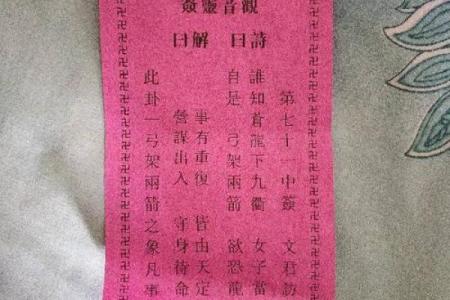 觀音靈簽
詩曰
解曰
第七十一中簽 文君訪
誰知蒼龍下九衢 女子當
自是 弓架兩箭 欲恐龍
事有重復 皆由天定
營謀出入 守身待命
此卦一弓架兩箭之象凡事